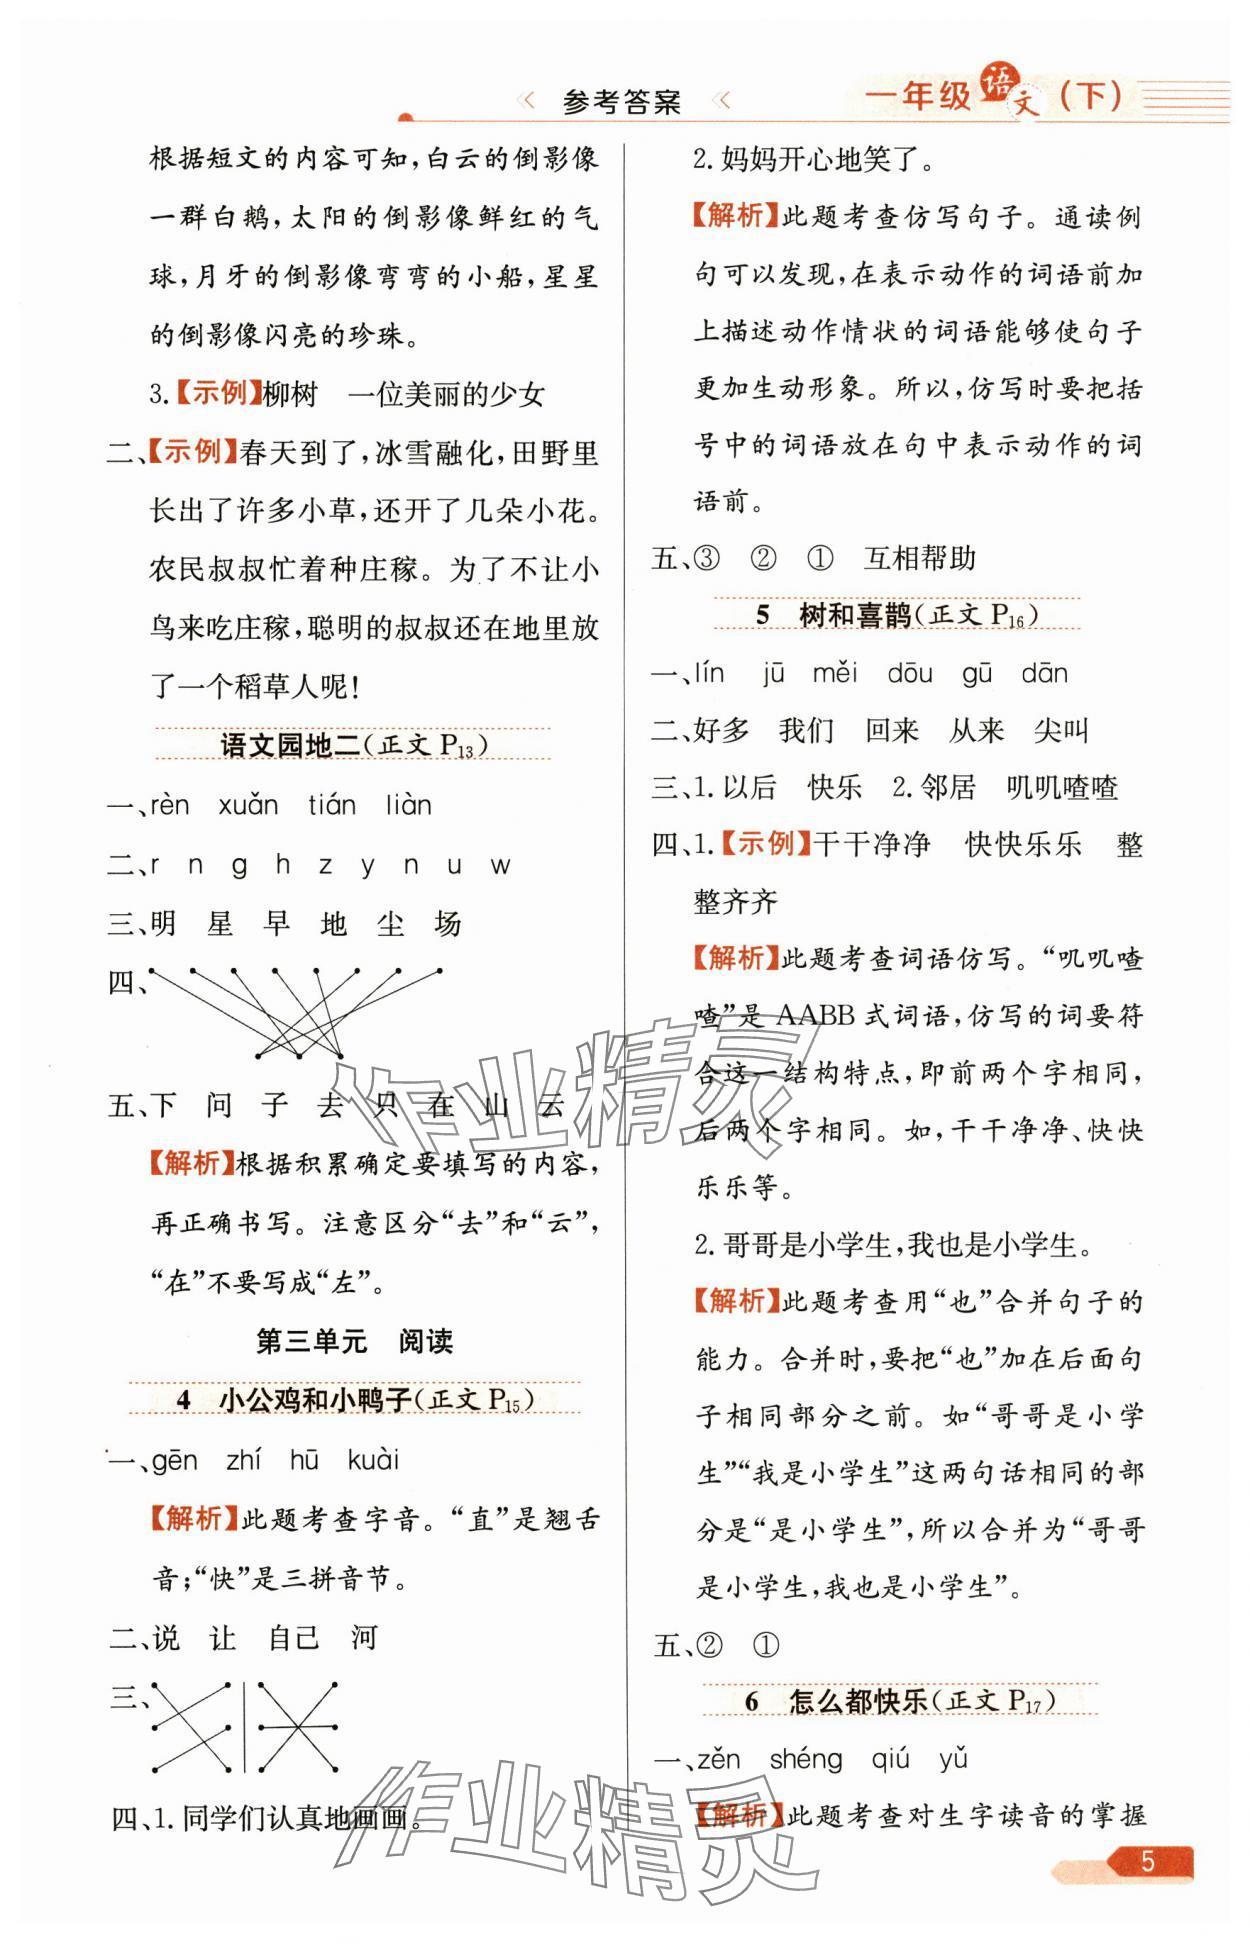 参考答案
一年级语文(下)
根据短文的内容可知,白云的倒影像
一群白鹅,太阳的倒影像鲜红的气
球,月牙的倒影像弯弯的小船,星星
的倒影像闪亮的珍珠。
3.【示例】柳树 一位美丽的少女
二、【示例】春天到了,冰雪融化,田野里
长出了许多小草,还开了几朵小花。
农民叔叔忙着种庄稼。为了不让小
鸟来吃庄稼,聪明的叔叔还在地里放
了一个稻草人呢!
语文园地二(正文 P13)
一、rèn xuǎn tián liàn
二、r n g h z y n u w
三、明 星 早 地 尘 场
四、
五、下 问 子 去 只 在 山 云
【解析】根据积累确定要填写的内容,
再正确书写。注意区分“去”和“云”,
“在”不要写成“左”。
第三单元 阅读
4 小公鸡和小鸭子(正文 P15)
一、gēn zhí hū kuài
【解析】此题考查字音。“直”是翘舌
音;“快”是三拼音节。
二、说 让 自己 河
三、
四、1.同学们认真地画画。
2.妈妈开心地笑了。
【解析】此题考查仿写句子。通读例
句可以发现,在表示动作的词语前加
上描述动作情状的词语能够使句子
更加生动形象。所以,仿写时要把括
号中的词语放在句中表示动作的词
语前。
五、③ ② ① 互相帮助
5 树和喜鹊(正文 P16)
一、lín jū měi dōu gū dān
二、好多 我们 回来 从来 尖叫
三、1.以后 快乐 2.邻居 叽叽喳喳
四、1.【示例】干干净净 快快乐乐 整
整齐齐
【解析】此题考查词语仿写。“叽叽喳
喳”是 AABB 式词语,仿写的词要符
合这一结构特点,即前两个字相同,
后两个字相同。如,干干净净、快快
乐乐等。
2.哥哥是小学生,我也是小学生。
【解析】此题考查用“也”合并句子的
能力。合并时,要把“也”加在后面句
子相同部分之前。如“哥哥是小学
生”“我是小学生”这两句话相同的部
分是“是小学生”,所以合并为“哥哥
是小学生,我也是小学生”。
五、② ①
6 怎么都快乐(正文 P17)
一、zěn shéng qiú yǔ
【解析】此题考查对生字读音的掌握
5
作业精灵
作业精灵